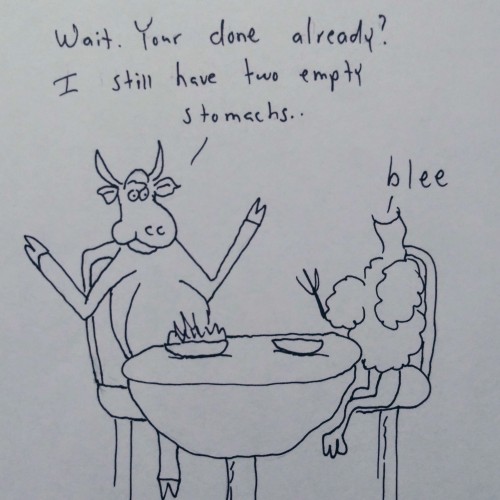 Wait. Your done already?
I still have two empty
stomachs..
blee